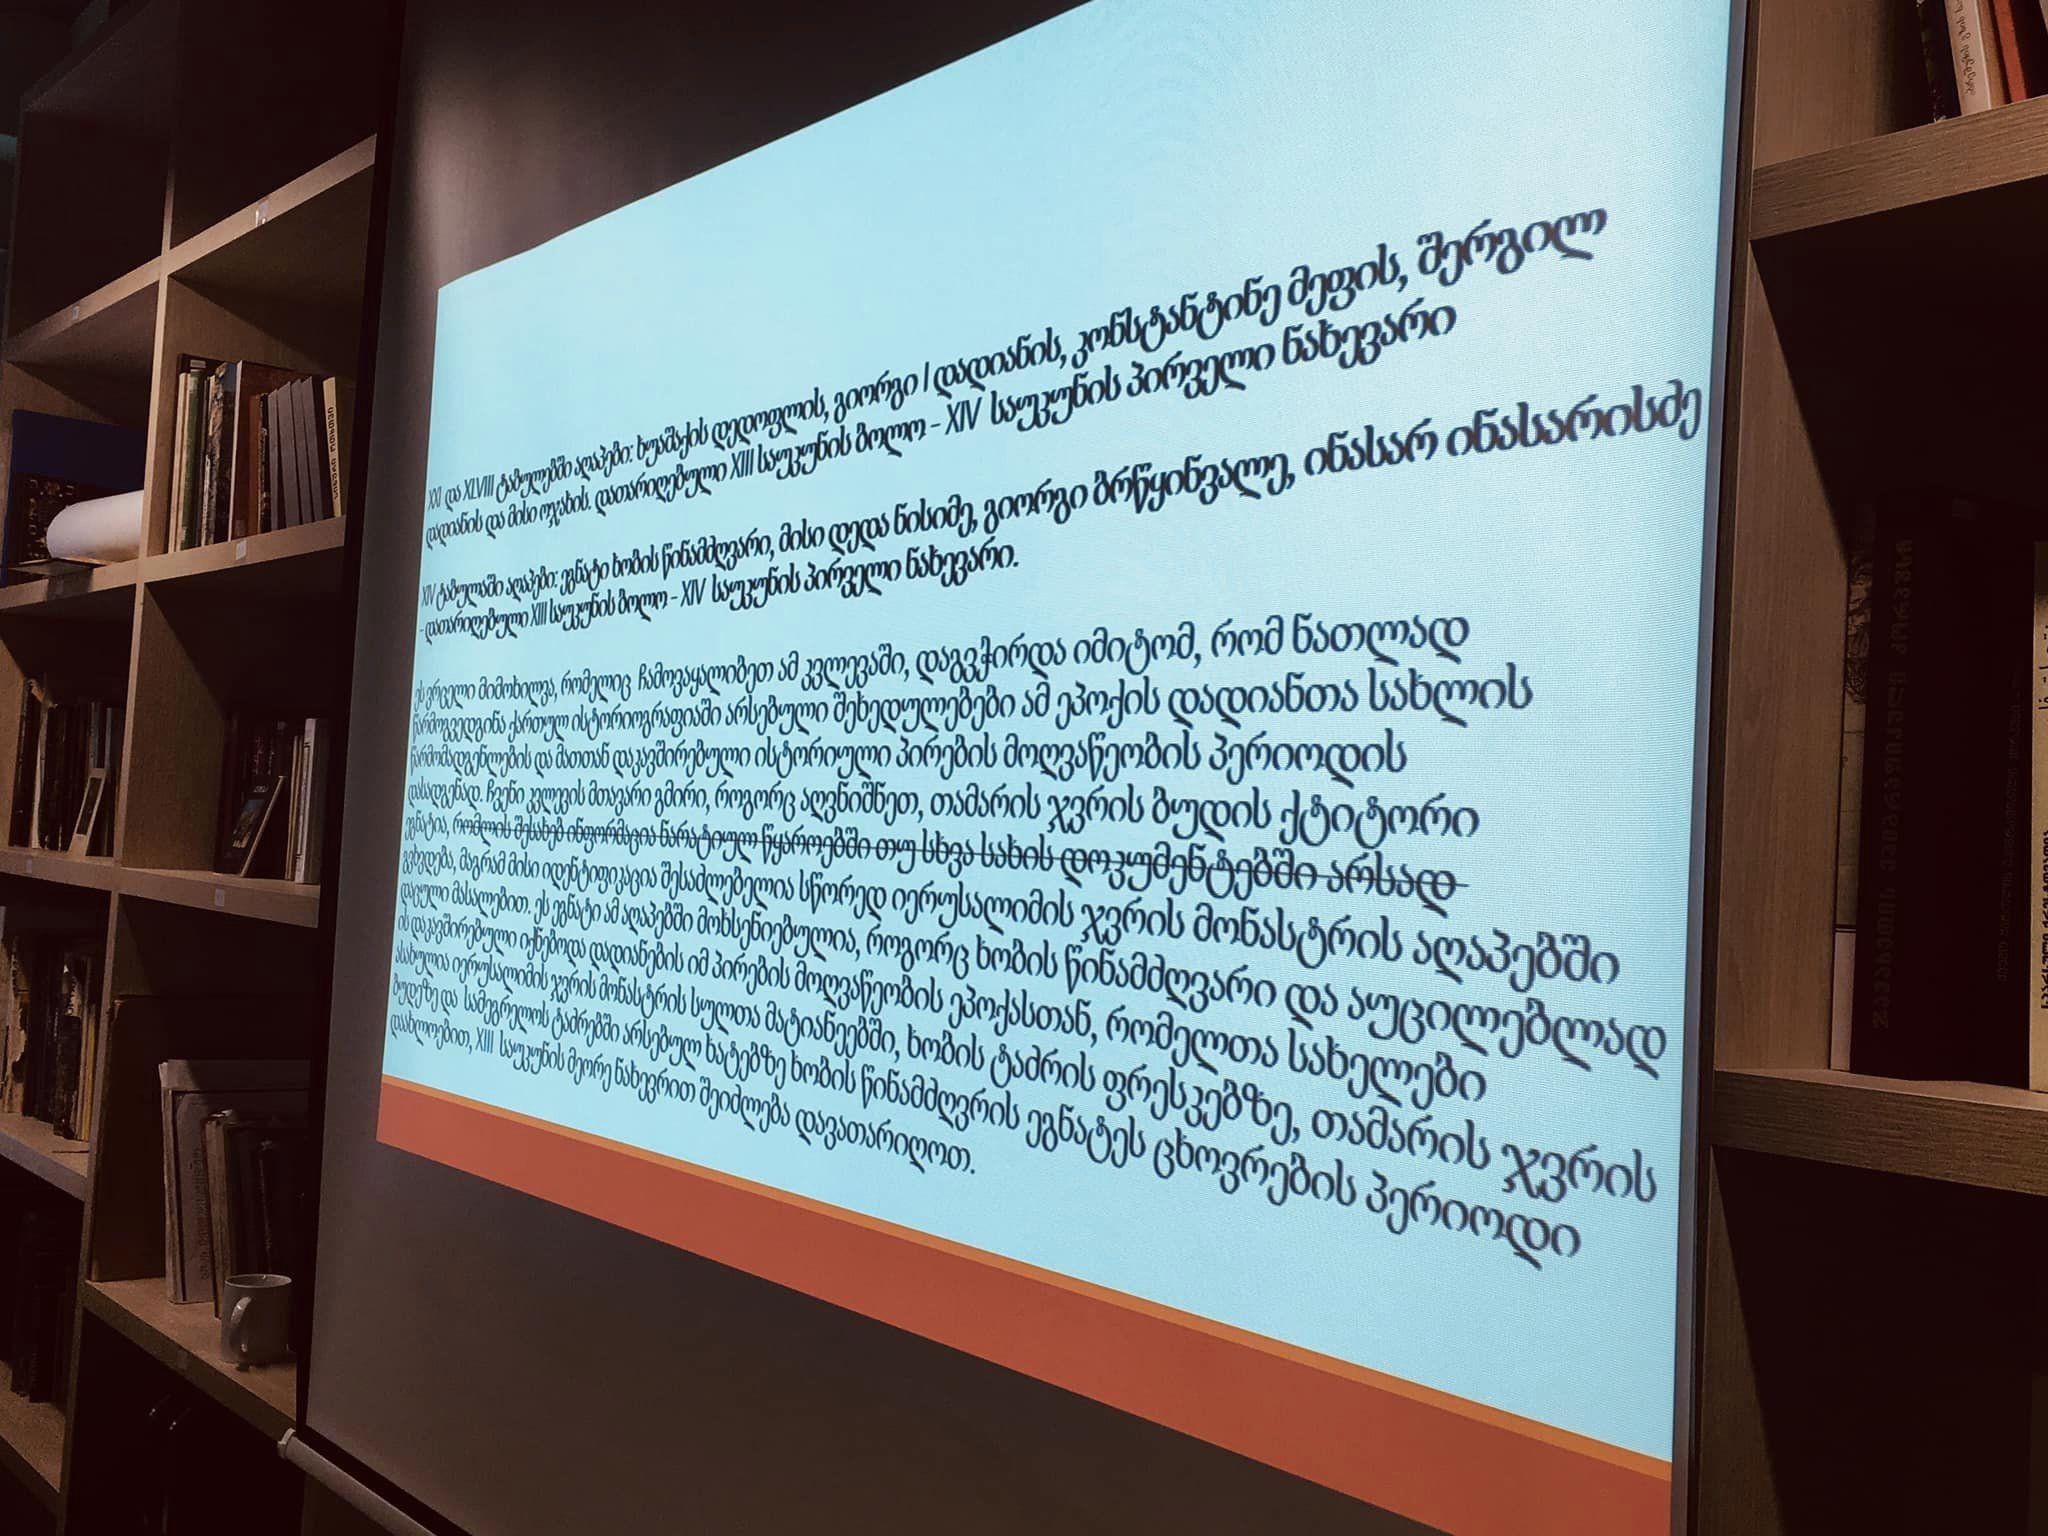 XXI და XLVIII ტაბულებში აღაპები: ხუაშაქის დედოფლის, გიორგი I დადიანის, კონსტანტინე მეფის, შერგილ
დადიანის და მისი ოჯახის. დათარიღებული XIII საუკუნის ბოლო - XIV საუკუნის პირველი ნახევარი
XIV ტაბულაში აღაპები: ეგნატი ხობის წინამძღვარი, მისი დედა ნისიმე, გიორგი ბრწყინვალე, ინასარ ინასარისძე
- დათარიღებული XIII საუკუნის ბოლო - XIV საუკუნის პირველი ნახევარი.
ეს ვრცელი მიმოხილვა, რომელიც ჩამოვაყალიბეთ ამ კვლევაში, დაგვჭირდა იმიტომ, რომ ნათლად
წარმოგვედგინა ქართულ ისტორიოგრაფიაში არსებული შეხედულებები ამ ეპოქის დადიანთა სახლის
წარმომადგენლების და მათთან დაკავშირებული ისტორიული პირების მოღვაწეობის პერიოდის
დასადგენად. ჩვენი კვლევის მთავარი გმირი, როგორც აღვნიშნეთ, თამარის ჯვრის ბუდის ქტიტორი
ეგნატია, რომლის შესახებ ინფორმაცია ნარატიულ წყაროებში თუ სხვა სახის დოკუმენტებში არსად
გვხვდება, მაგრამ მისი იდენტიფიკაცია შესაძლებელია სწორედ იერუსალიმის ჯვრის მონასტრის აღაპებში
დაცული მასალებით. ეს ეგნატი ამ აღაპებში მოხსენიებულია, როგორც ხობის წინამძღვარი და აუცილებლად
ის დაკავშირებული იქნებოდა დადიანების იმ პირების მოღვაწეობის ეპოქასთან, რომელთა სახელები
ასახულია იერუსალიმის ჯვრის მონასტრის სულთა მატიანეებში, ხობის ტაძრის ფრესკებზე, თამარის ჯვრის
ბუდეზე და სამეგრელოს ტაძრებში არსებულ ხატებზე ხობის წინამძღვრის ეგნატეს ცხოვრების პერიოდი
დაახლოებით, XIII საუკუნის მეორე ნახევრით შეიძლება დავათარიღოთ.